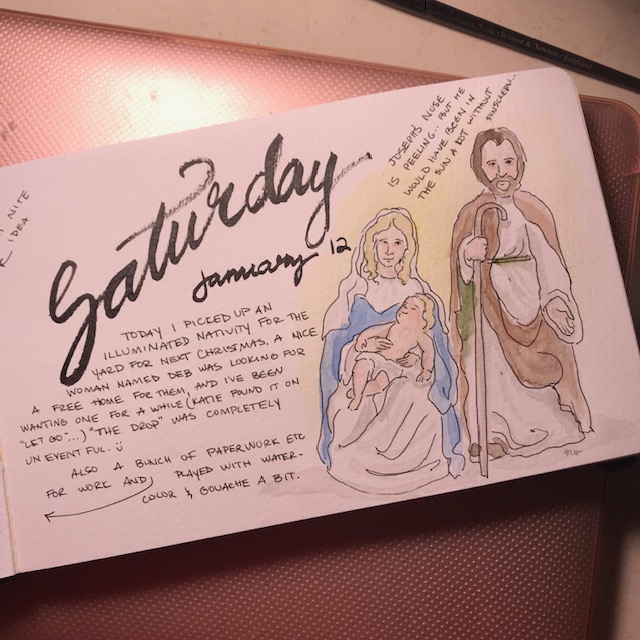 Saturday
January 12
TODAY I PICKED UP AN
ILLUMINATED NATIVITY FOR THE
YARD FOR NEXT CHRISTMAS. A NICE
WOMAN NAMED DEB WAS LOOKING FOR
A FREE HOME FOR THEM, AND I'VE BEEN
WANTING ONE FOR A WHILE (KATIE FOUND IT ON
"LET GO"...) "THE DROP" WAS COMPLETELY
UNEVENTFUL. Ü
ALSO A BUNCH OF PAPERWORK ETC
FOR WORK AND PLAYED WITH WATER-
COLOR & GOUACHE A BIT.
JOSEPH'S NOSE
IS PEELING... BUT HE
WOULD HAVE BEEN IN
THE SUN A LOT WITHOUT
SUNSCREEN..
NITE
IDEA
Winsor & Newton